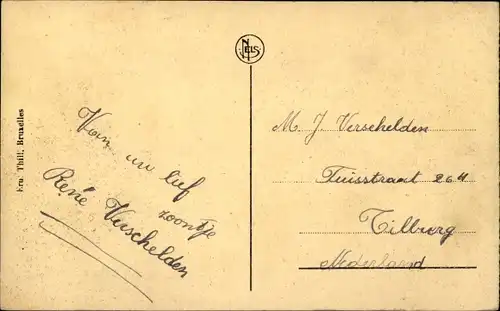 Ern. Thill, Bruxelles
NELS
Van uw lief
zoontje
René Verschelden
M. J. Verschelden
Tuisstraat 264
Tilburg
Nederland